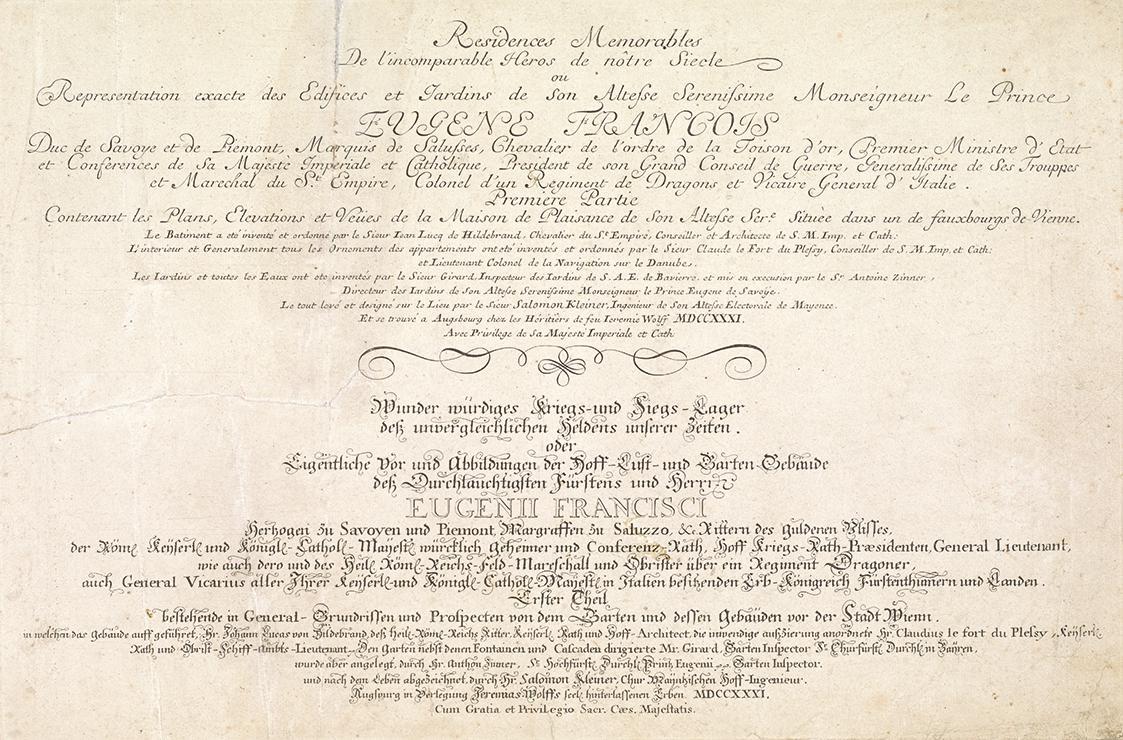 Residences Memorables
De l'incomparable Heros de nôtre Siecle
ou
Representation exacte des Edifices et Jardins de Son Altesse Serenissime Monseigneur Le Prince
EUGENE FRANCOIS
Duc de Savoye et de Piemont, Marquis de Salusses, Chevalier de l'ordre de la Toison d'or, Premier Ministre d'Etat
et Conferences de Sa Majesté Imperiale et Catholique, President de son Grand Conseil de Guerre, Generalissime de Ses Trouppes
et Marechal du St. Empire, Colonel d'un Regiment de Dragons et Vicaire General d'Italie.
Premiere Partie
Contenant les Plans, Elevations et Veües de la Maison de Plaisance de Son Altesse Sere. Situëe dans un de fauxbourgs de Vienne.
Le Batiment a eté inventé et ordonné par le Sieur Iean Lucq de Hildebrand, Chevalier du St. Empire, Conseiller et Architecte de S. M. Imp. et Cath:
L'interieur et Generalement tous les Ornements des appartements ont eté inventés et ordonnés par le Sieur Claude le Fort du Plessy, Conseiller de S. M. Imp. et Cath:
et Lieutenant Colonel de la Navigation sur le Danube.
Les Iardins et toutes les Eaux ont eté inventés par le Sieur Girard, Inspecteur des Iardins de S. A. E. de Baviere, et mis en execution par le Sr. Antoine Zinner,
Directeur des Iardins de Son Altesse Serenissime Monseigneur le Prince Eugene de Savoije.
Le tout levé et designé sur le Lieu par le Sieur Salomon Kleiner, Ingenieur de Son Altesse Electorale de Mayence.
Et se trouve a Augsbourg chez les Héritiers de feu Ieremie Wolff MDCCXXXI.
Avec Privilege de Sa Majesté Imperiale et Cath:
Wunder würdiges Kriegs- und Siegs-Lager
deß unvergleichlichen Heldens unserer Zeiten.
oder
Eigentliche Vor und Abbildungen der Hoff-Lust- und Garten-Gebäude
deß Durchlauchtigsten Fürstens und Herrn
EUGENII FRANCISCI
Herzogen zu Savoyen und Piemont, Margraffen zu Saluzzo, &c. Rittern des guldenen Vlisses,
der Röm. Keyserl. und Königl. Cathol. Majestæt würcklich Geheimer und Conferenz-Rath, Hoff Kriegs-Rath-Præsidenten, General Lieutenant,
wie auch dero und des Heil. Röm. Reichs-Feld-Marschall und Obrister über ein Regiment Dragoner,
auch General Vicarius aller Ihrer Keyserl. und Königl. Cathol. Mayest. in Italien besitzenden Erb-Königreich Fürstenthümern und Landen.
Erster Theil
bestehende in General-Grundrissen und Prospecten von dem Garten und dessen Gebäuden vor der Stadt Wienn.
in welchen das Gebäude auffgeführet, Hr. Johann Lucas von Hildebrand, deß Heil. Röm. Reichs Ritter, Keyserl. Rath und Hoff-Architect, die inwendige außzierung anordnete Hr. Claudius le fort du Plessy, Keyserl.
Rath und Obrist-Schiff-Ambts-Lieutenant. Den Garten nebst denen Fontainen und Cascaden dirigierte Mr. Girard, Garten Inspector Sr. Churfürstl. Durchl. in Bayren,
wurde aber angelegt, durch Hr. Anthon Zinner, Sr. Hochfürstl. Durchl. Prinz Eugenii Garten Inspector.
und nach dem Leben abgezeichnet, durch Hr. Salomon Kleiner, Chur Mayntzischen Hoff-Ingenieur.
Augspurg in Verlegung Jeremias Wolffs seel. hinterlassenen Erben. MDCCXXXI.
Cum Gratia et Privilegio Sacr. Cæs. Majestatis.